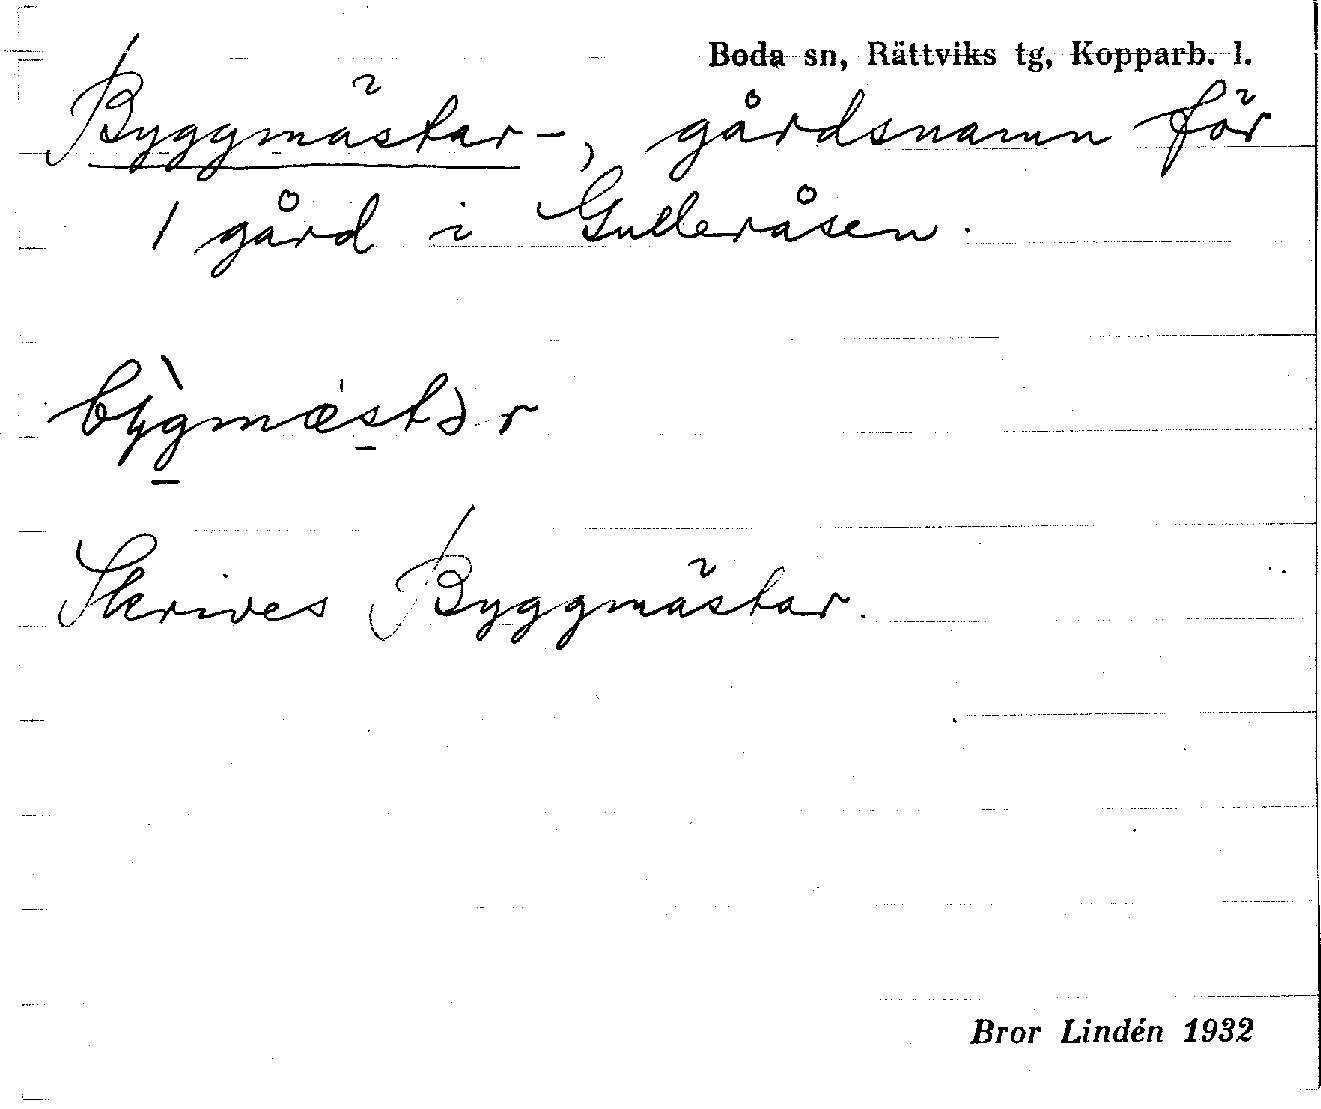 Boda sn, Rättviks tg, Kopparb. l.
Byggmästar-, gårdsnamn för
1 gård i Gulleråsen.
by̍gmæstər
Skrives Byggmästar.
Bror Lindén 1932